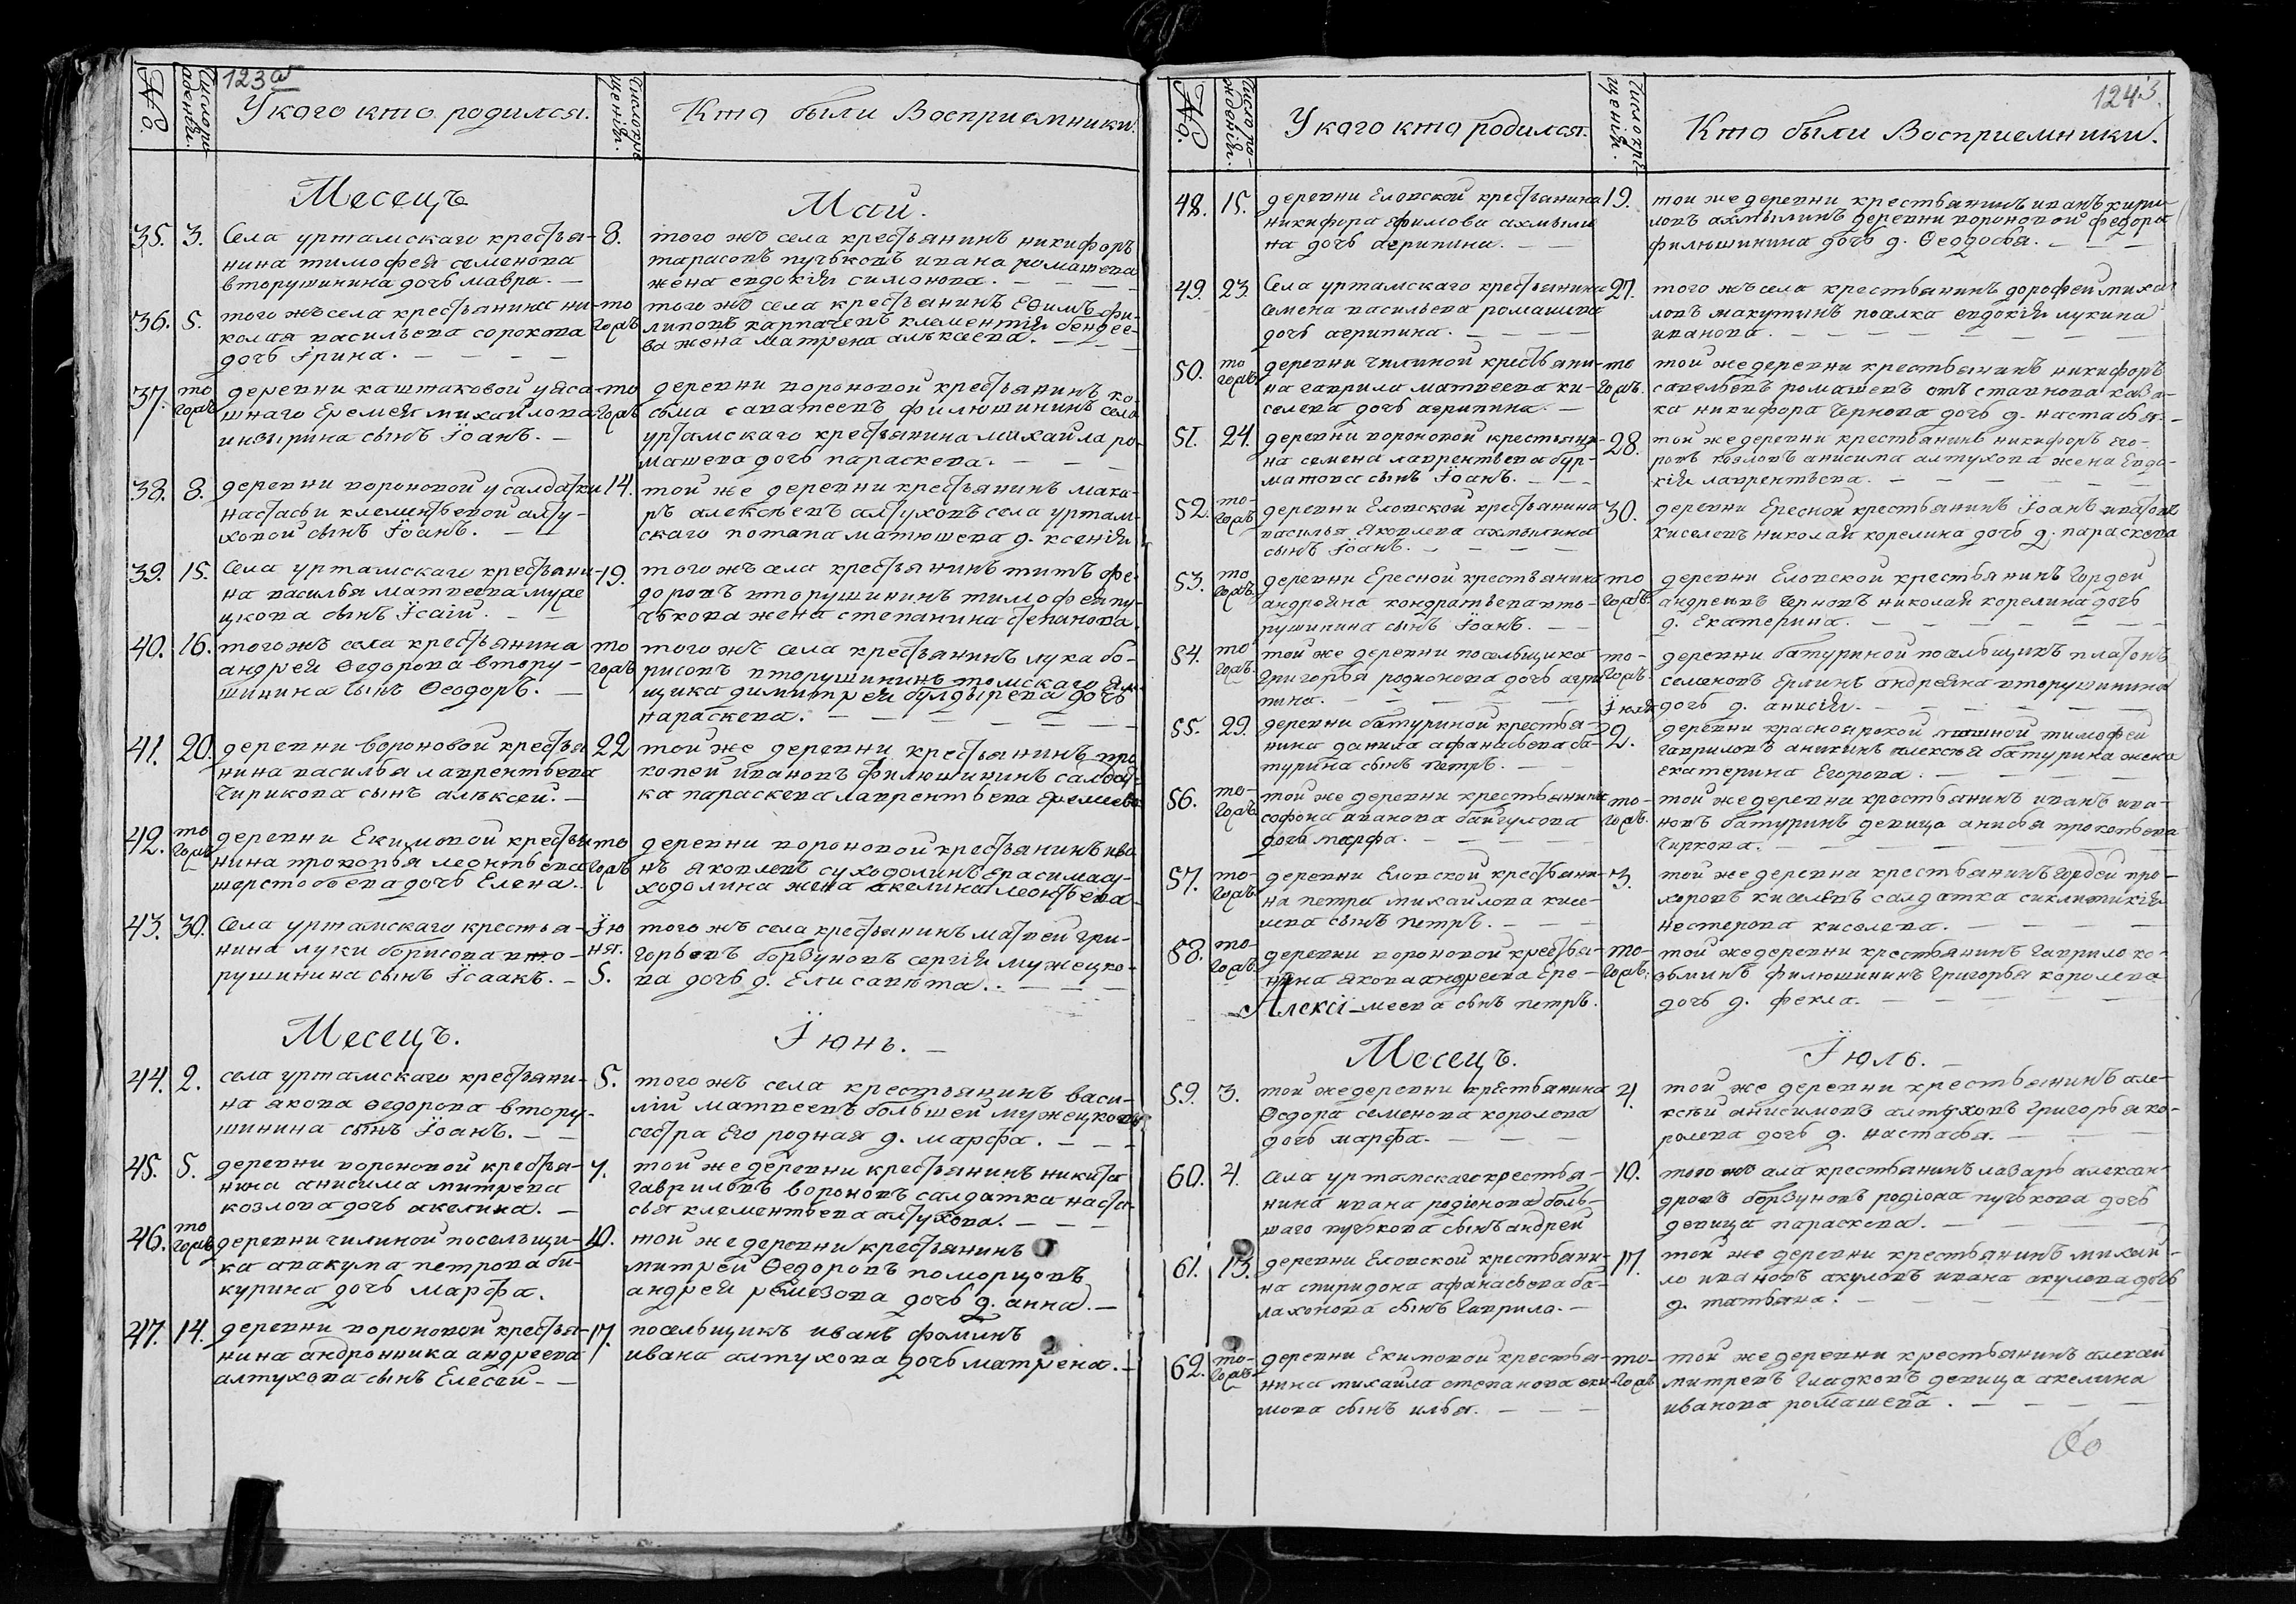 123 об
№.
Число рождения.
У кого кто родился.
Число крещения.
Кто были Восприемники.
Месецъ
Маи.
35. 3. Села уртамскаго крестья- 8.
нина тимофея семенова
вторушинина дочь мавра. —
того жъ села крестьянинъ никифоръ
тарасовъ пучковъ ивана ромашева
жена евдокія симонова. — —
36. 5. того жъ села крестьянина ни- то
колая васильева сорокова гожъ
дочь Ірина. — — — —
того жъ села крестьянинъ Ефимъ фи-
липовъ карпачевъ клементія бендее-
ва жена матрена алѣксеева. — —
37. то гожъ деревни каштаковой у яса- то
шнаго Еремея михайлова гожъ
инзырина сынъ Іоанъ. —
деревни вороновой крестьянинъ ко-
сьма саватеевъ филюшининъ села
уртамскаго крестьянина михаила ро-
машева дочь параскева. — — —
38. 8. деревни вороновой у салдатки 14.
настасьи клементьевой алту-
ховой сынъ Іоанъ. — —
той же деревни крестьянинъ мака-
ръ алексѣевъ алтуховъ села уртам-
скаго потапа матюшева д. ксенія
39. 15. Села уртамскаго крестьяни- 19.
на василья матвеева муже
цкова сынъ Ісаій. — —
того жъ села крестьянинъ титъ фе-
доровъ вторушининъ тимофея пу-
чькова жена степанина степанова.
40. 16. того жъ села крестьянина то
андрея Ѳедорова втору- гожъ
шинина сынъ Ѳеодоръ. —
того жъ села крестьянинъ лука бо-
рисовъ вторушининъ томскаго ям-
щика димитрея булдырева дочь
параскева. — — — — — —
41. 20. деревни вороновой крестья 22
нина василья лаврентьева
Чирикова сынъ алѣксеи. —
той же деревни крестьянинъ про
копеи ивановъ филюшининъ салдат-
ка параскева лаврентьева еремеева
42. то гожъ деревни Екимовой крестья то
нина прокопья леонтьева гожъ
шерстобоева дочь Елена.
деревни вороновой крестьянинъ ива
нъ яковлевъ суходолинъ Ерасима су-
ходолина жена акелина леонтьева
43. 30. Села уртамскаго крестья- Ію
нина луки борисова вто- ня.
рушинина сынъ Ісаакъ. — 5.
того жъ села крестьянинъ матвеи гри-
горьевъ борзуновъ сергія мужецко-
ва дочь д. Елисавѣта. — — —
Месецъ.
Іюнь. —
44. 2. села уртамскаго крестьяни- 5.
на якова ѳедорова втору-
шинина сынъ Іоанъ. — —
того жъ села крестьянинъ васи-
лій матвеевъ большей мужецковъ
сестра его родная д. марфа. — — —
45. 5. деревни вороновой крестья- 7.
нина анисима митрева
козлова дочь акелина. —
той же деревни крестьянинъ никита
гавриловъ вороновъ салдатка наста-
сья клементьева алтухова. — — —
46. то гожъ деревни чилиной поселъщи- 10.
ка авакума петрова би-
курина дочь марфа.
той же деревни крестьянинъ
митреи Ѳедоровъ поморцовъ
андрея ремезова дочь д. анна. —
47. 14. деревни вороновой крестья- 17.
нина андронника андреева
алтухова сынъ Елесеи — —
поселъщикъ иванъ фоминъ
ивана алтухова дочь матрена. —
124 З.
№.
Число рождения.
У кого кто родился.
Число крещения.
Кто были Восприемники.
48. 15. деревни Еловской крестьянина 19.
никифора ефимова ахмыли
на дочь агрипина. — —
той же деревни крестьянинъ иванъ кири-
ловъ ахмылинъ деревни вороновой федора
филюшинина дочь д. Ѳеодосья. — — —
49. 23. Села уртамскаго крестьянина 27.
семена васильева ромашева
дочь агрипина. — — —
того жъ села крестьянинъ дорофеи михаи
ловъ макутинъ повалка евдокія лукина
иванова. — — — — — —
50. то гожъ. деревни чилиной крестьяни- то
на гаврила матвеева ки- гожъ.
селева дочь агрипина. —
той же деревни крестьянинъ никифоръ
савельевъ ромашевъ отъставнова каза-
ка никифора Чернова дочь д. настасья. —
51. 24. деревни вороновой крестьяни- 28.
на семена лаврентьева бур-
матова сынъ Іоанъ. — —
той же деревни крестьянинъ никифоръ его-
ровъ козловъ анисима алтухова жена Евдо-
кія лаврентьева. — — — — —
52. то- гожъ деревни Еловской крестьянина 30.
василья яковлева ахмылина
сынъ Іоанъ. — — — —
деревни Ересной крестьянинъ Іоанъ ивановъ
Киселевъ николая корелина дочь д. параскева
53. то гожъ. деревни Ересной крестьянина то
андреяна кондратьева вто- гожъ.
рушинина сынъ Іоанъ. — —
деревни Еловской крестьянинъ Гордеи
андреевъ Черновъ николая корелина дочь
д. Екатерина. — — — — —
54. то гожъ. той же деревни поселъщика то-
Григорья родионова дочь агри гожъ.
пина. — — — — Іюля
деревни батуриной поселъщикъ платонъ
семеновъ Ерлинъ андреяна вторушинина
дочь д. анисія. — — — — —
55. 29. деревни батуриной крестья- 2.
нина данила афанасьева ба-
турина сынъ петръ. — —
деревни красноярской тимофеи
гавриловъ аникинъ алексѣя батурина жена
екатерина Егорова. — — — —
56. то- гожъ. той же деревни крестьянина то-
софона иванова байгулова гожъ.
дочь марфа. — — — —
той же деревни крестьянинъ иванъ ива-
новъ батуринъ девица анисья прокопьева
Чиркова. — — — — — —
57. то- гожъ. деревни Еловской крестьяни- 3.
на петра михайлова кисе-
лева сынъ петръ. — — —
той же деревни крестьянинъ гордеи про-
хоровъ киселевъ салдатка сиклитикія
нестерова киселева. — — — —
58. то- гожъ. деревни вороновой крестья- то-
нина якова андреева Ере- гожъ.
Алексі — меева сынъ петръ.
той же деревни крестьянинъ гаврило ко-
зьминъ филюшининъ Григорья королева
дочь д. фекла. — — — —
Месецъ.
Іюль. —
59. 3. той же деревни крестьянина 4.
Ѳедора семенова королева
дочь марфа. — — —
той же деревни крестьянинъ але-
ксѣи анисимовъ алтуховъ григорья ко-
ролева дочь д. настасья. — — —
60. 4. села уртамскаго крестья- 10.
нина ивана родіонова боль-
шаго пучкова сынъ андреи
того жъ села крестьянинъ лазарь алексан-
дровъ борзуновъ родіона пучкова дочь
девица параскева. — — — —
61. 13. деревни Еловской крестьяни- 17.
на спиридона афанасьева ба-
лахонова сынъ Гаврило. —
той же деревни крестьянинъ михаи-
ло ивановъ акуловъ ивана акулова дочь
д. татьяна. — — — —
62. то- гожъ деревни Екимовой крестья- то-
нина михаила степанова еки- гожъ
мова сынъ илья. — — —
той же деревни крестьянинъ алексеи
митревъ гладковъ девица акелина
иванова ромашева. — — — —